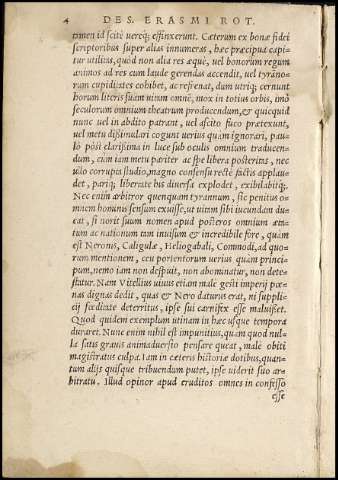 4 DES. ERASMI ROT.
men id scitè uereq́; effinxerunt. Cæterum ex bonæ fidei
scriptoribus super alias innumeras, hæc præcipua capi-
tur utilitas, quòd non alia res æquè, uel bonorum regum
animos ad res cum laude gerendas accendit, uel tyranno-
rum cupiditates cohibet, ac refrenat, dum utriq́; cernunt
horum literis suam uitam omnē, mox in totius orbis, imò
seculorum omnium theatrum producendum, & quicquid
nunc uel in abdito patrant, uel ascito fuco prætexunt,
uel metu dissimulari cogunt uerius quàm ignorari, pau-
lò pòst clarissima in luce sub oculis omnium traducen-
dum, cùm iam metu pariter ac spe libera posteritas, nec
ullo corrupta studio, magno consensu rectè factis applau-
det, pariq́; libertate his diuersa explodet, exibilabitq́;.
Nec enim arbitror quenquam tyrannum, sic penitus o-
mnem hominis sensum exuisse, ut uitam sibi iucundam du-
cat, si norit suum nomen apud posteros omnium æta-
tum ac nationum tam inuisum & incredibile fore, quàm
est Neronis, Caligulæ, Heliogabali, Commodi, ad quo-
rum mentionem, ceu portentorum uerius quàm princi-
pum, nemo iam non despuit, non abominatur, non dete-
statur. Nam Vitellius uiuus etiam malè gesti imperij pœ-
nas dignas dedit, quas & Nero daturus erat, ni supplici-
cij fœditate deterritus, ipse sui carnifex esse maluisset.
Quod quidem exemplum utinam in hæc usque tempora
duraret. Nunc enim nihil est impunitius, quàm quod nul-
la satis grauis animaduersio pensare queat, malè obiti
magistratus culpa. Iam in cæteris historiæ dotibus, quan-
tum alijs quisque tribuendum putet, ipse uiderit suo ar-
bitratu. Illud opinor apud eruditos omnes in confesso
esse